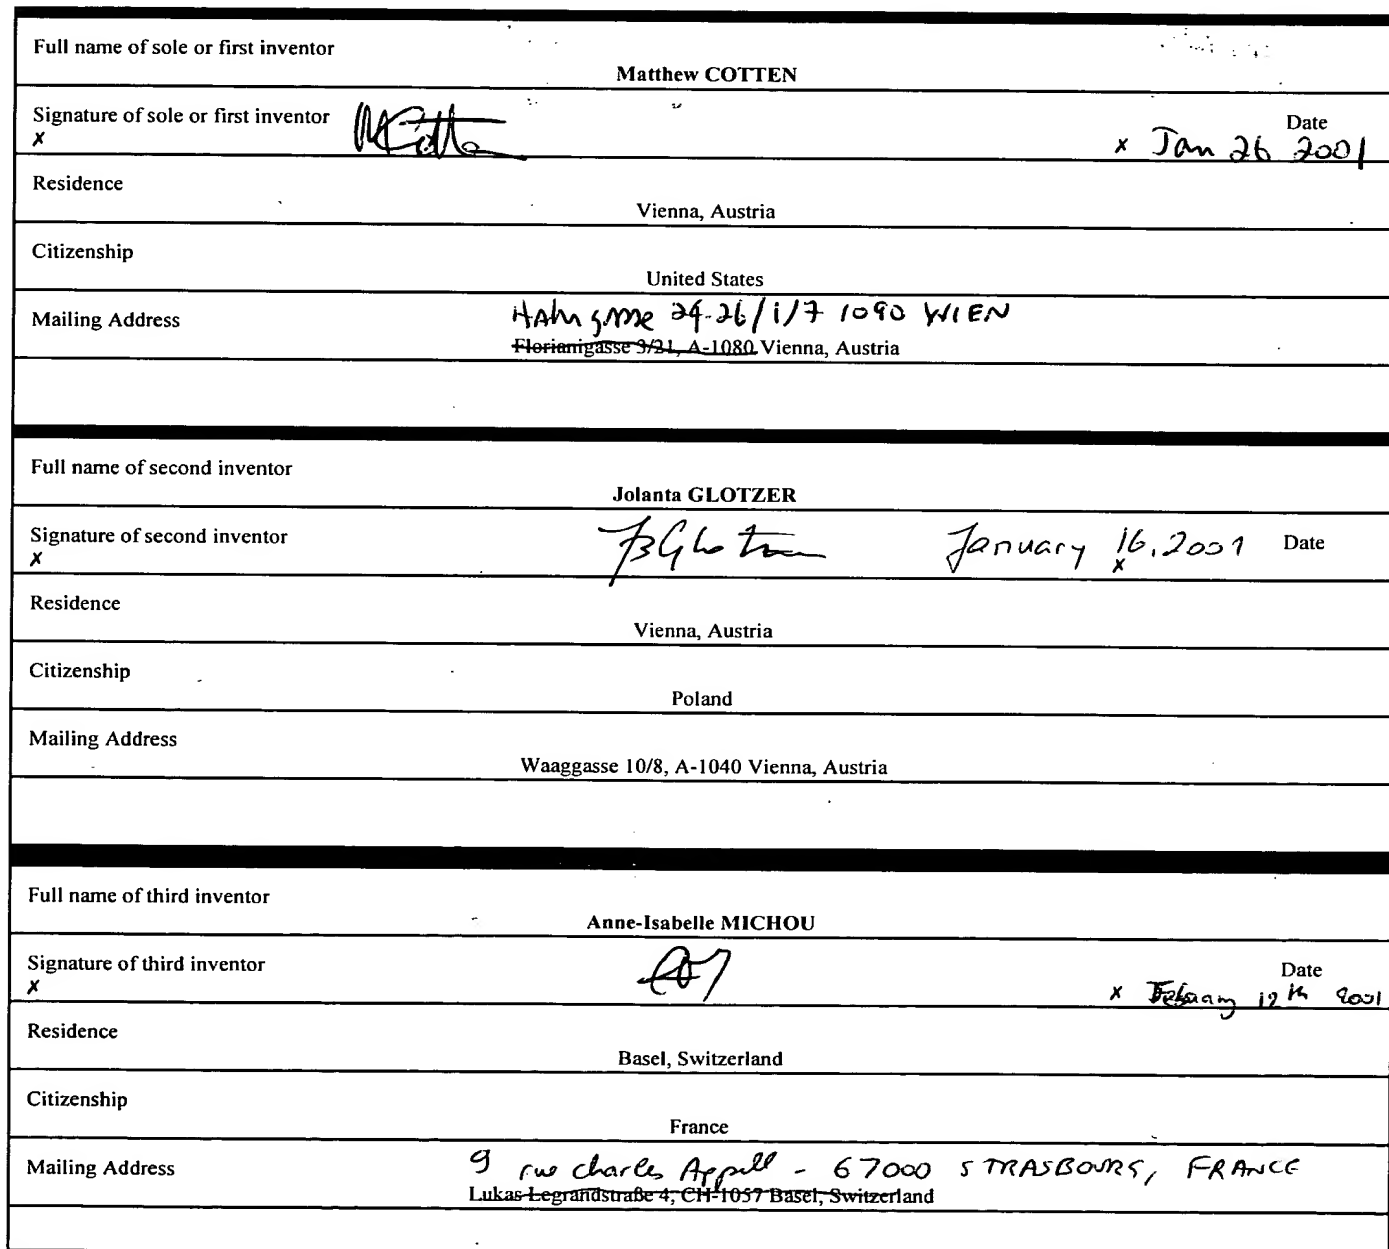 Full name of sole or first inventor
Matthew COTTEN
Signature of sole or first inventor
x
Date
x Jan 26 2001
Residence
Vienna, Austria
Citizenship
United States
Mailing Address
24-26/1/7 1090 WIEN
Florianigasse 3/21, A-1080 Vienna, Austria
Full name of second inventor
Jolanta GLOTZER
Signature of second inventor
x
January 16, 2001 Date
x
Residence
Vienna, Austria
Citizenship
Poland
Mailing Address
Waaggasse 10/8, A-1040 Vienna, Austria
Full name of third inventor
Anne-Isabelle MICHOU
Signature of third inventor
x
Date
x February 12th 2001
Residence
Basel, Switzerland
Citizenship
France
Mailing Address
9 rue Charles Appell - 67000 STRASBOURG, FRANCE
Lukas Legrandstraße 4, CH-1057 Basel, Switzerland